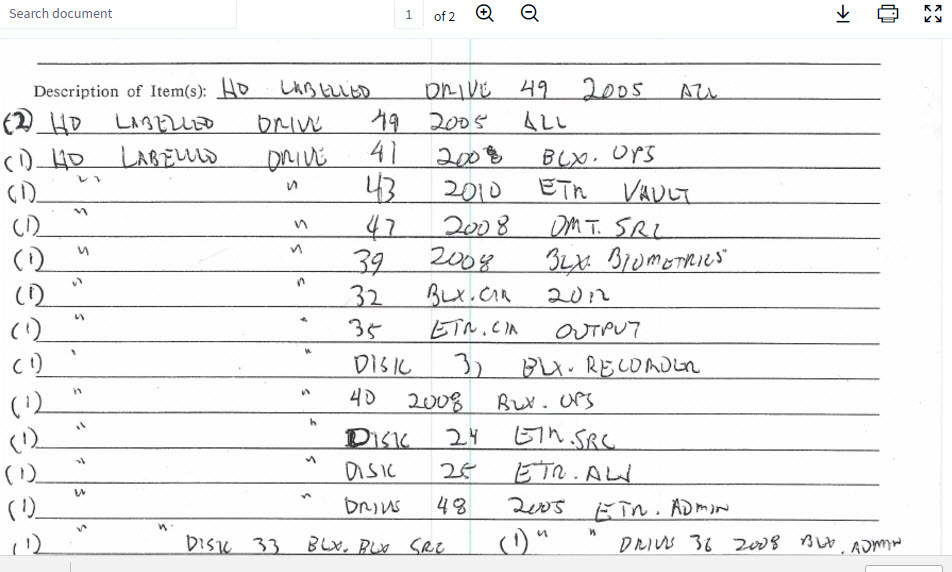 Search document 1 of 2
Description of Item(s): HD LABELLED DRIVE 49 2005 ALL
(2) HD LABELLED DRIVE 49 2005 ALL
(1) HD LABELLED DRIVE 41 2008 BLX. OPS
(1) " " 43 2010 ETR VAULT
(1) " " 47 2008 DMT. SRC
(1) " " 39 2008 BLX. BIOMETRICS
(1) " " 32 BLX.CIR 2012
(1) " " 35 ETR.CIR OUTPUT
(1) " " DISK 31 BLX. RECORDER
(1) " " 40 2008 BLX. OPS
(1) " " DISK 24 ETR.SRC
(1) " " DISK 25 ETR.ALL
(1) " " DRIVE 48 2005 ETR. ADMIN
(1) " " DISK 33 BLX. BLX SRC (1) " " DRIVE 36 2008 BLX. ADMIN